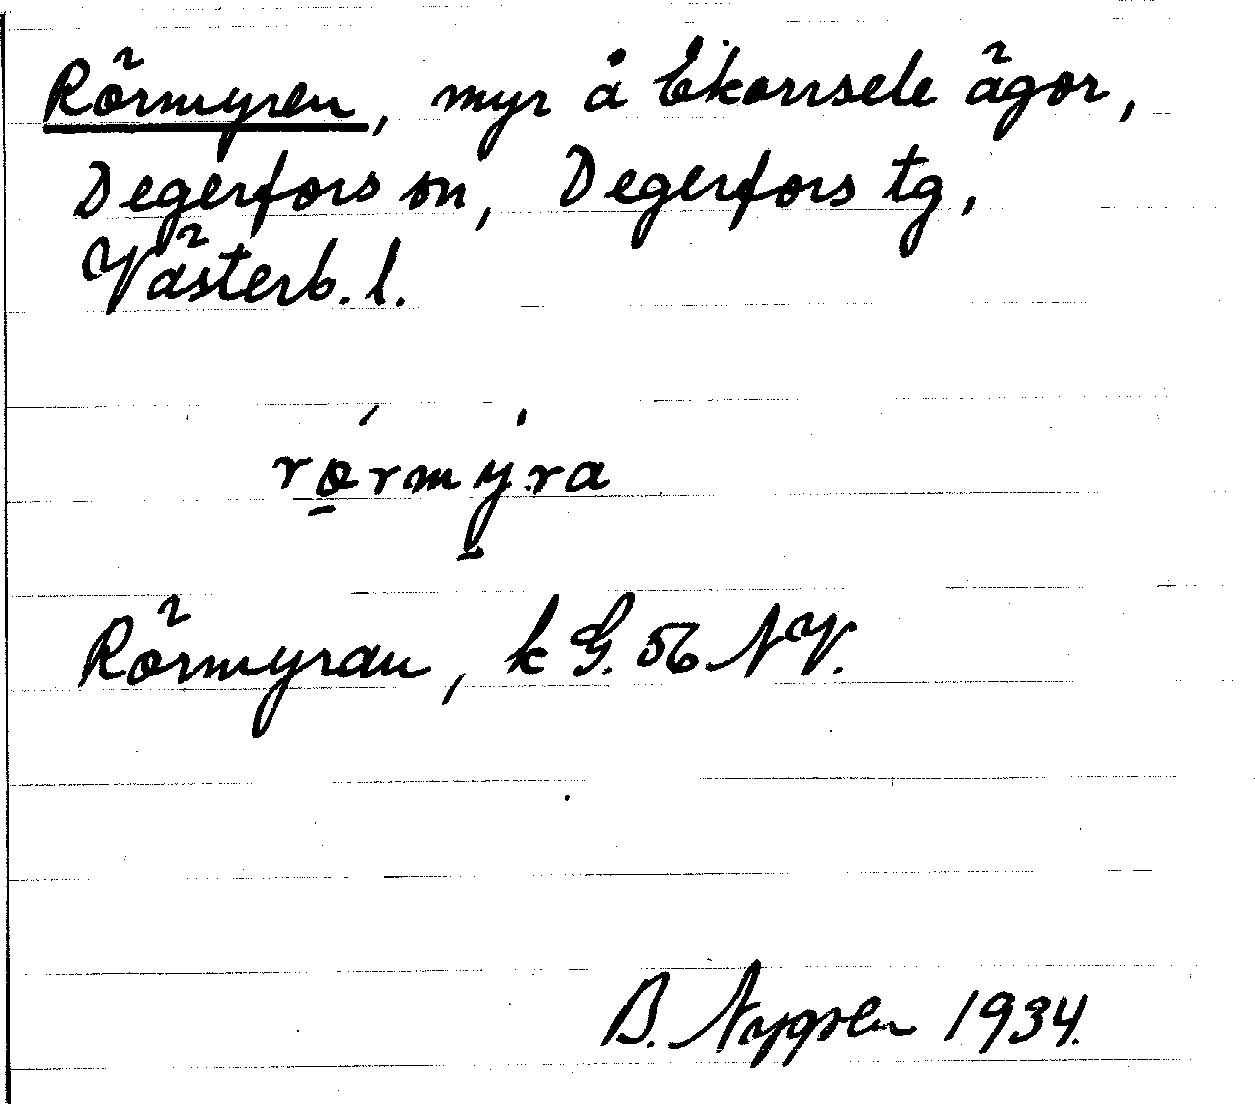 Rörmyren, myr å Ekorrsele ägor,
Degerfors sn, Degerfors tg,
Västerb. l.
rǿ̠rmẏ̠ra
Rörmyran, k G. 56 NV.
B. Nygren 1934.